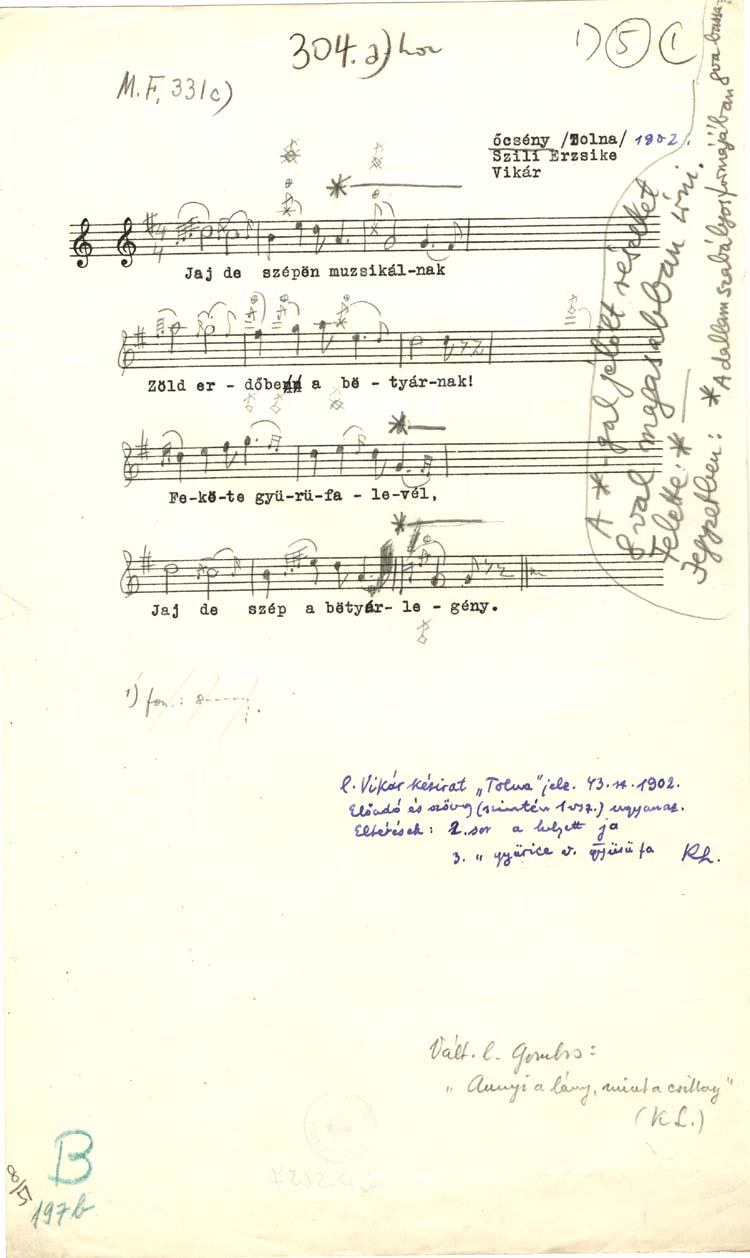 304. a)
M.F. 331c)
1) 5 (1
őcsény /Tolna/ 1902.
Szili Erzsike
Vikár
Jaj de szépön muzsikál-nak
Zöld er - dőbenn a bö - tyár-nak!
Fe-kö-te gyü-rü-fa - le-vél,
Jaj de szép a bötyár- le - gény.
A *-gal jelölt részeket
8val magasabban írni.
Felette: *
Jegyzetben: * A dallam szabályos formájában 8va bassa
1)
l. Vikár kézirat „Tolna" jelz. 43.sz. 1902.
Előadó és szöveg (szintén 1 vsz.) ugyanaz.
Eltérések: 2. sor a helyett ja
3. " gyürice v. gyürü fa RL.
Vált. l. Gombos:
„Annyi a lány, mint a csillag"
(KL.)
B
197b
8/51